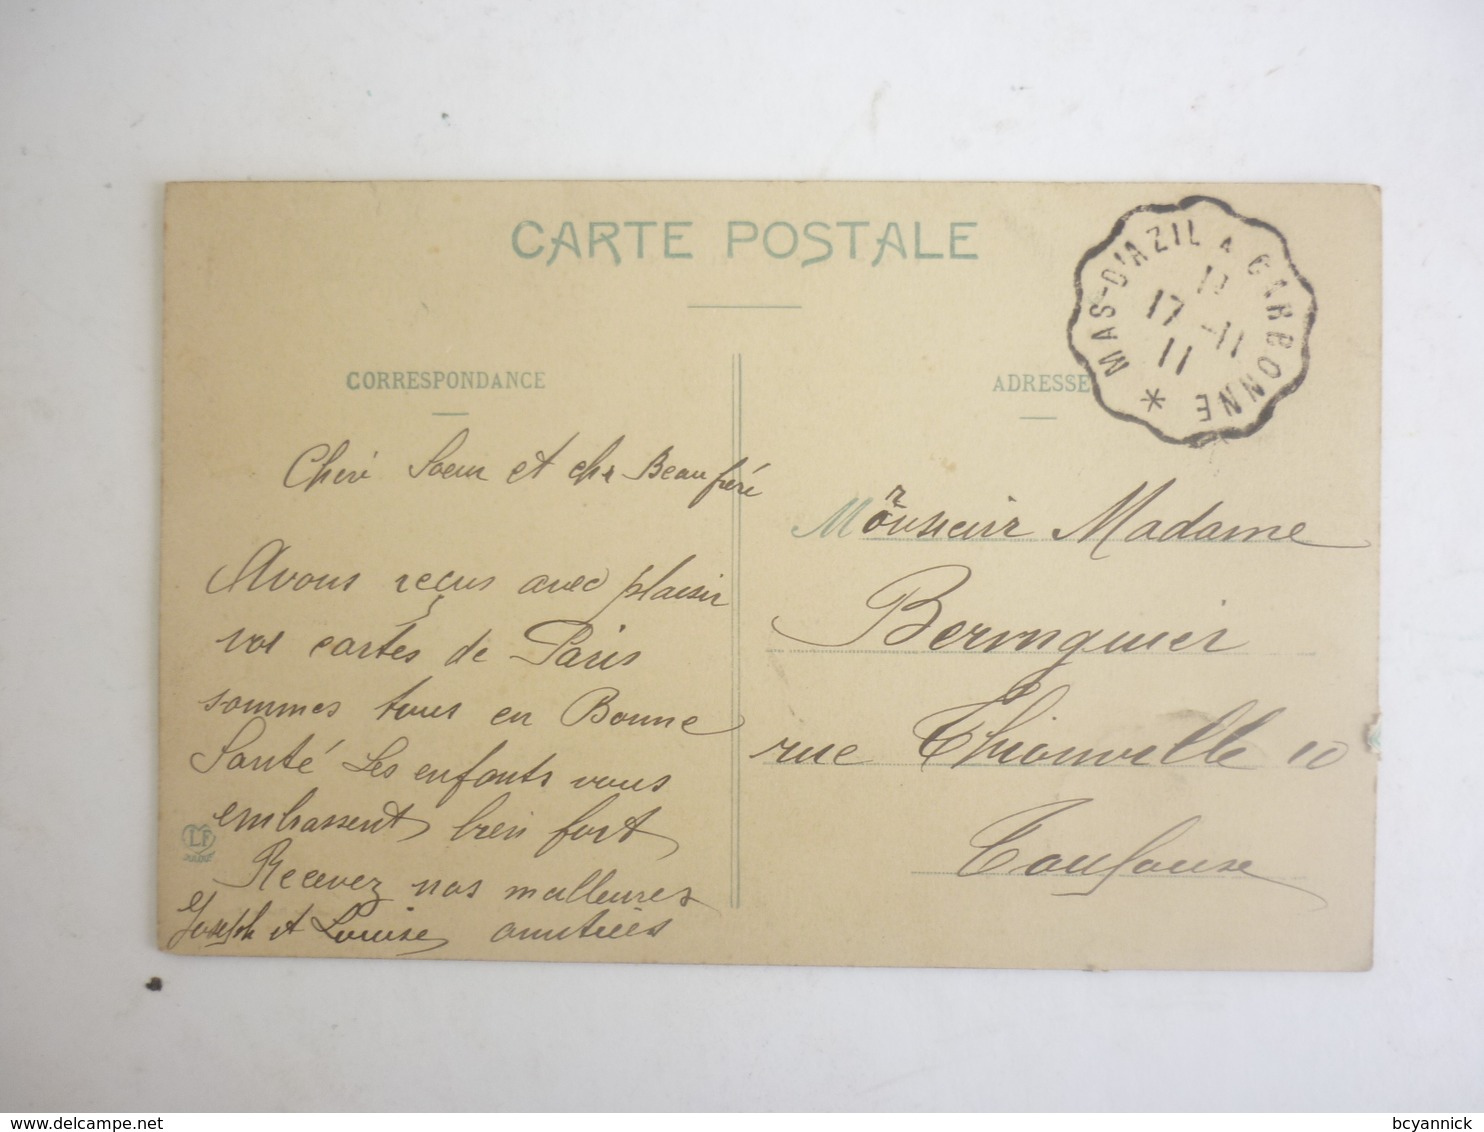 CARTE POSTALE
MAS-D'AZIL A CARBONNE *
17 -11
11
CORRESPONDANCE
ADRESSE
Cheré Soeur et cher Beau frére
Avous reçus avec plaisir
vos cartes de Paris
sommes tous en Bonne
Santé Les enfants vous
embrassent bien fort
Recevez nos meilleures
amitiées
Joseph et Louise
LF
Monsieur Madame
rue Thionville 10
Toulouse
delcampe.net
bcyannick